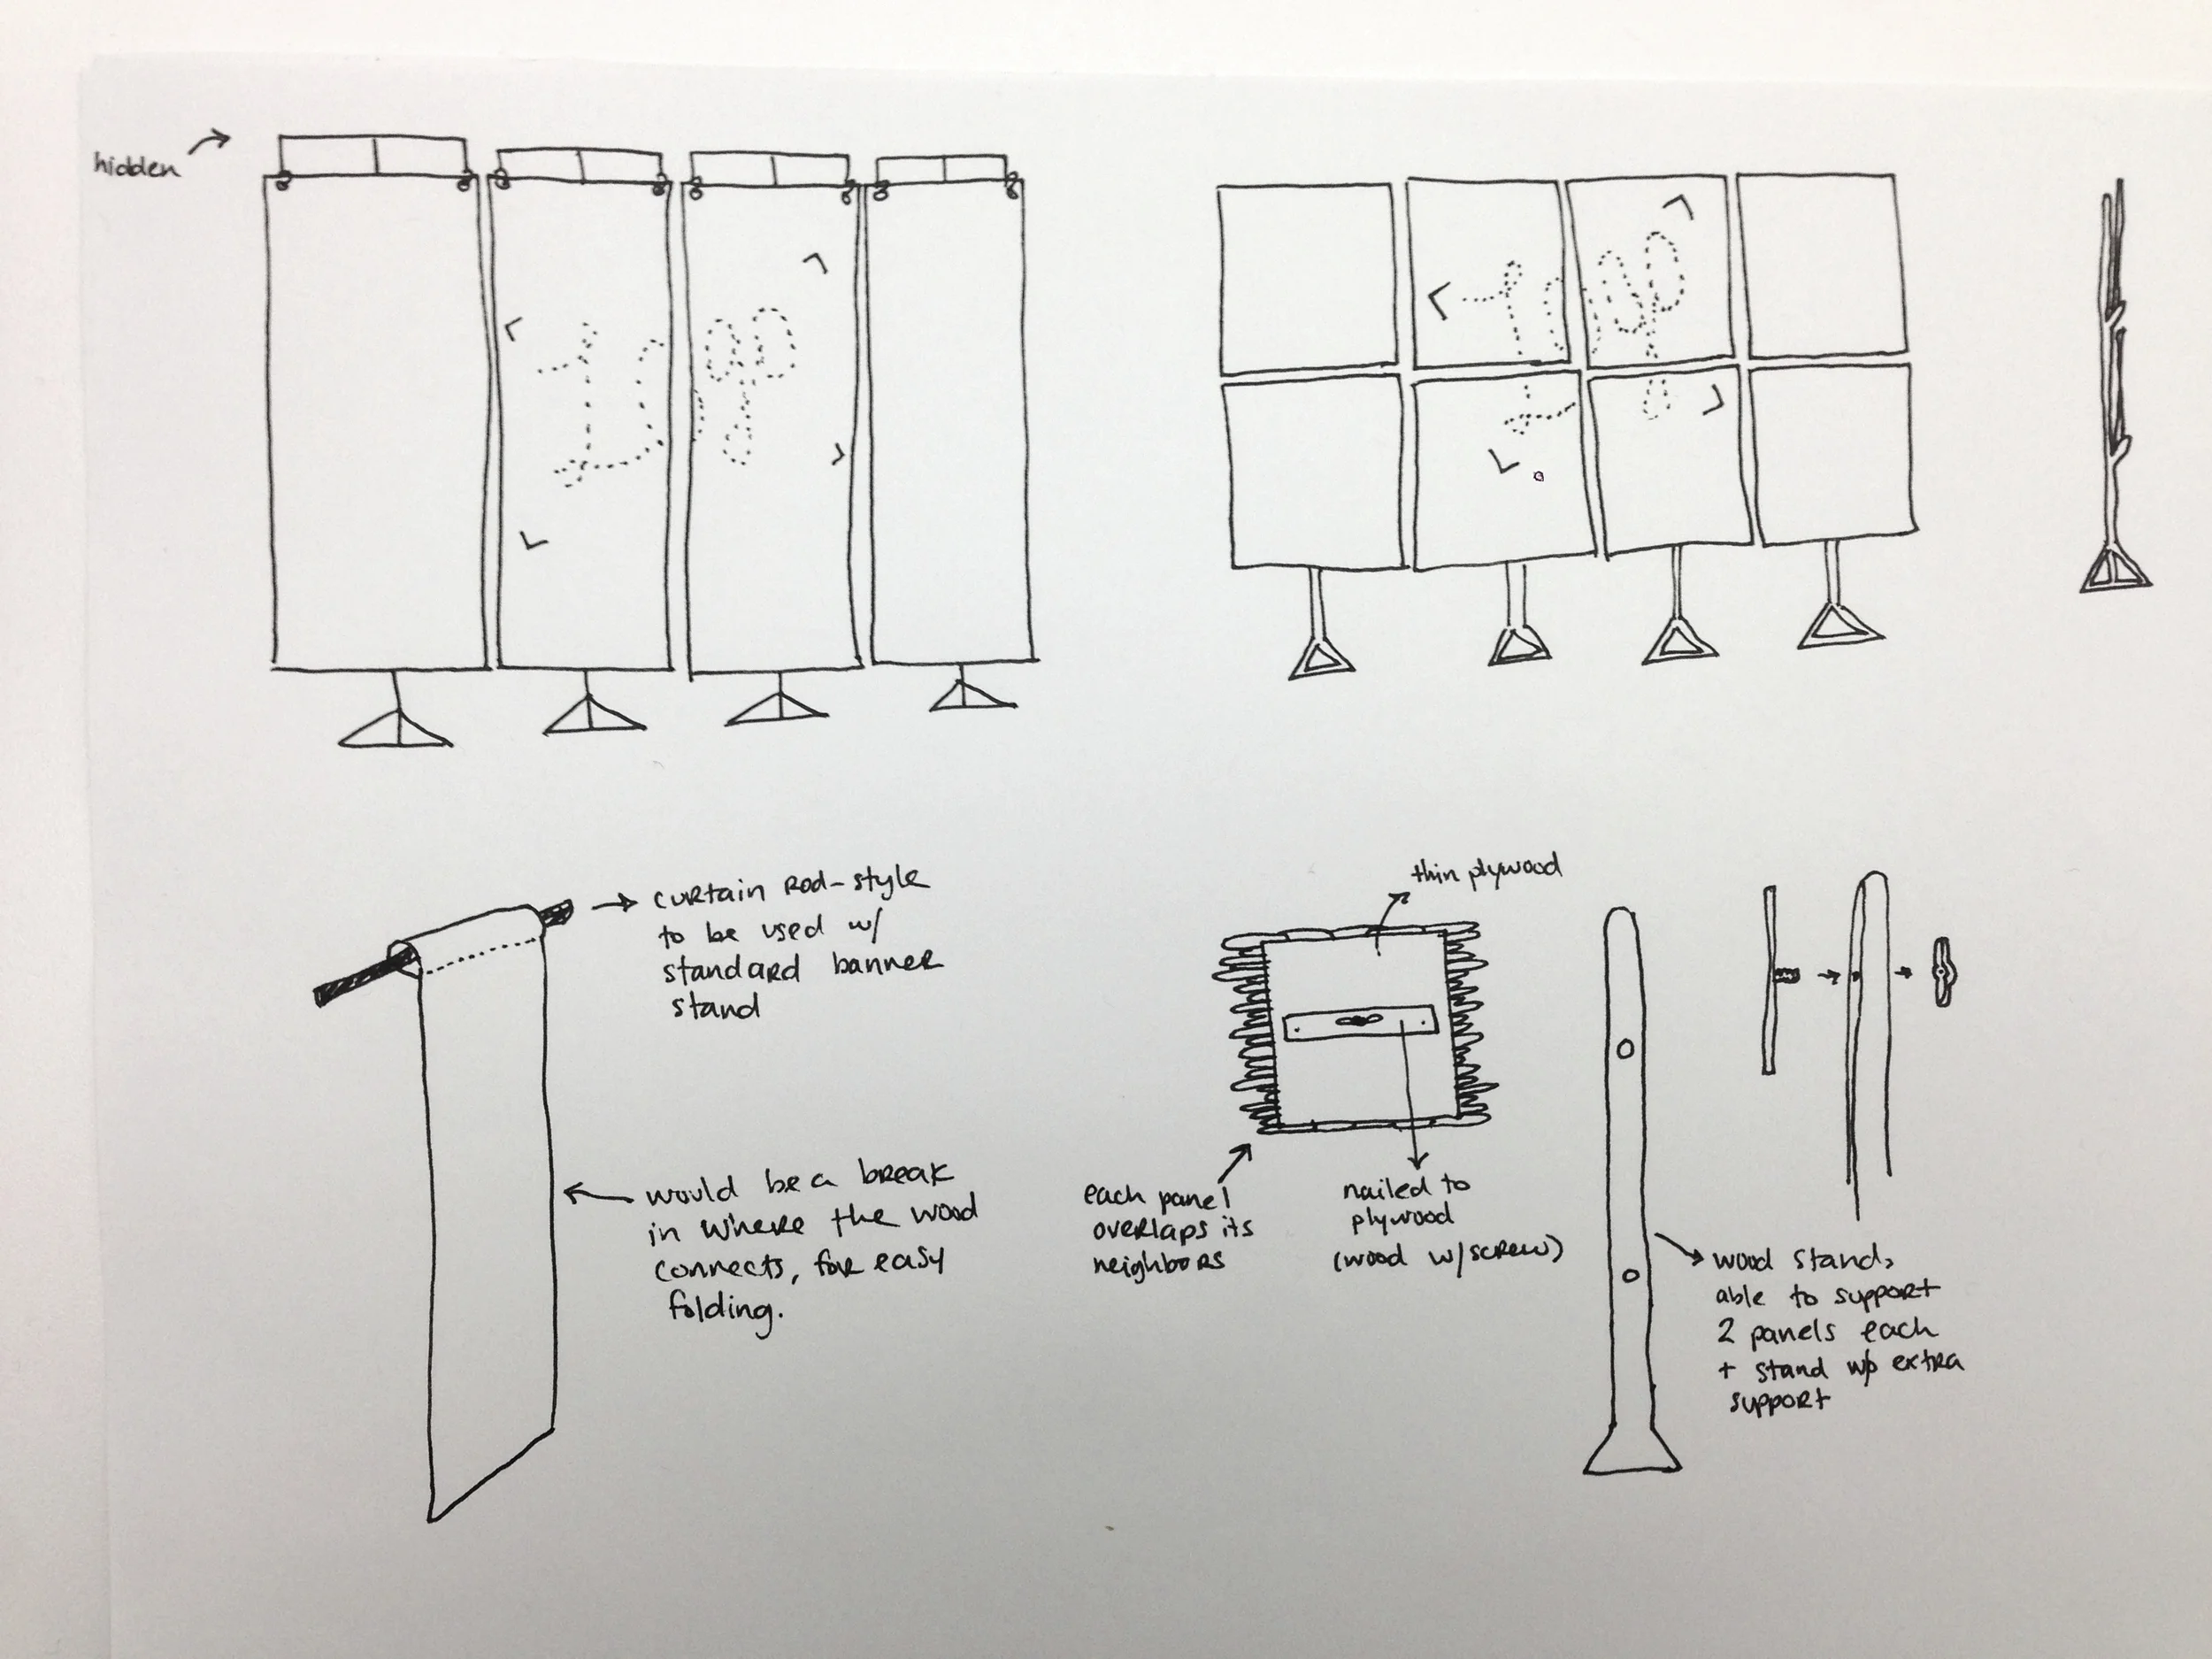 hidden
curtain rod-style
to be used w/
standard banner
stand
would be a break
in where the wood
connects, for easy
folding.
thin plywood
each panel
overlaps its
neighbors
nailed to
plywood
(wood w/screw)
wood stand,
able to support
2 panels each
+ stand w/o extra
support